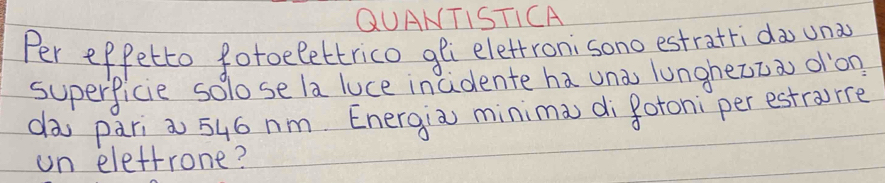 QUANTISTICA
Per effetto fotoelettrico gli elettroni sono estratti da una
superficie solo se la luce incidente ha una lunghezza d'on
da pari a 546 nm. Energia minima di fotoni per estrarre
un elettrone?